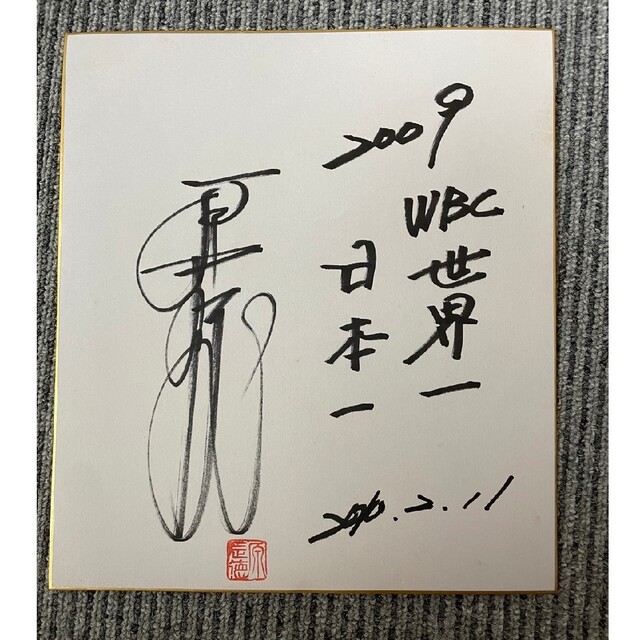 2009
WBC世界一
日本一
2010.2.11
原辰徳